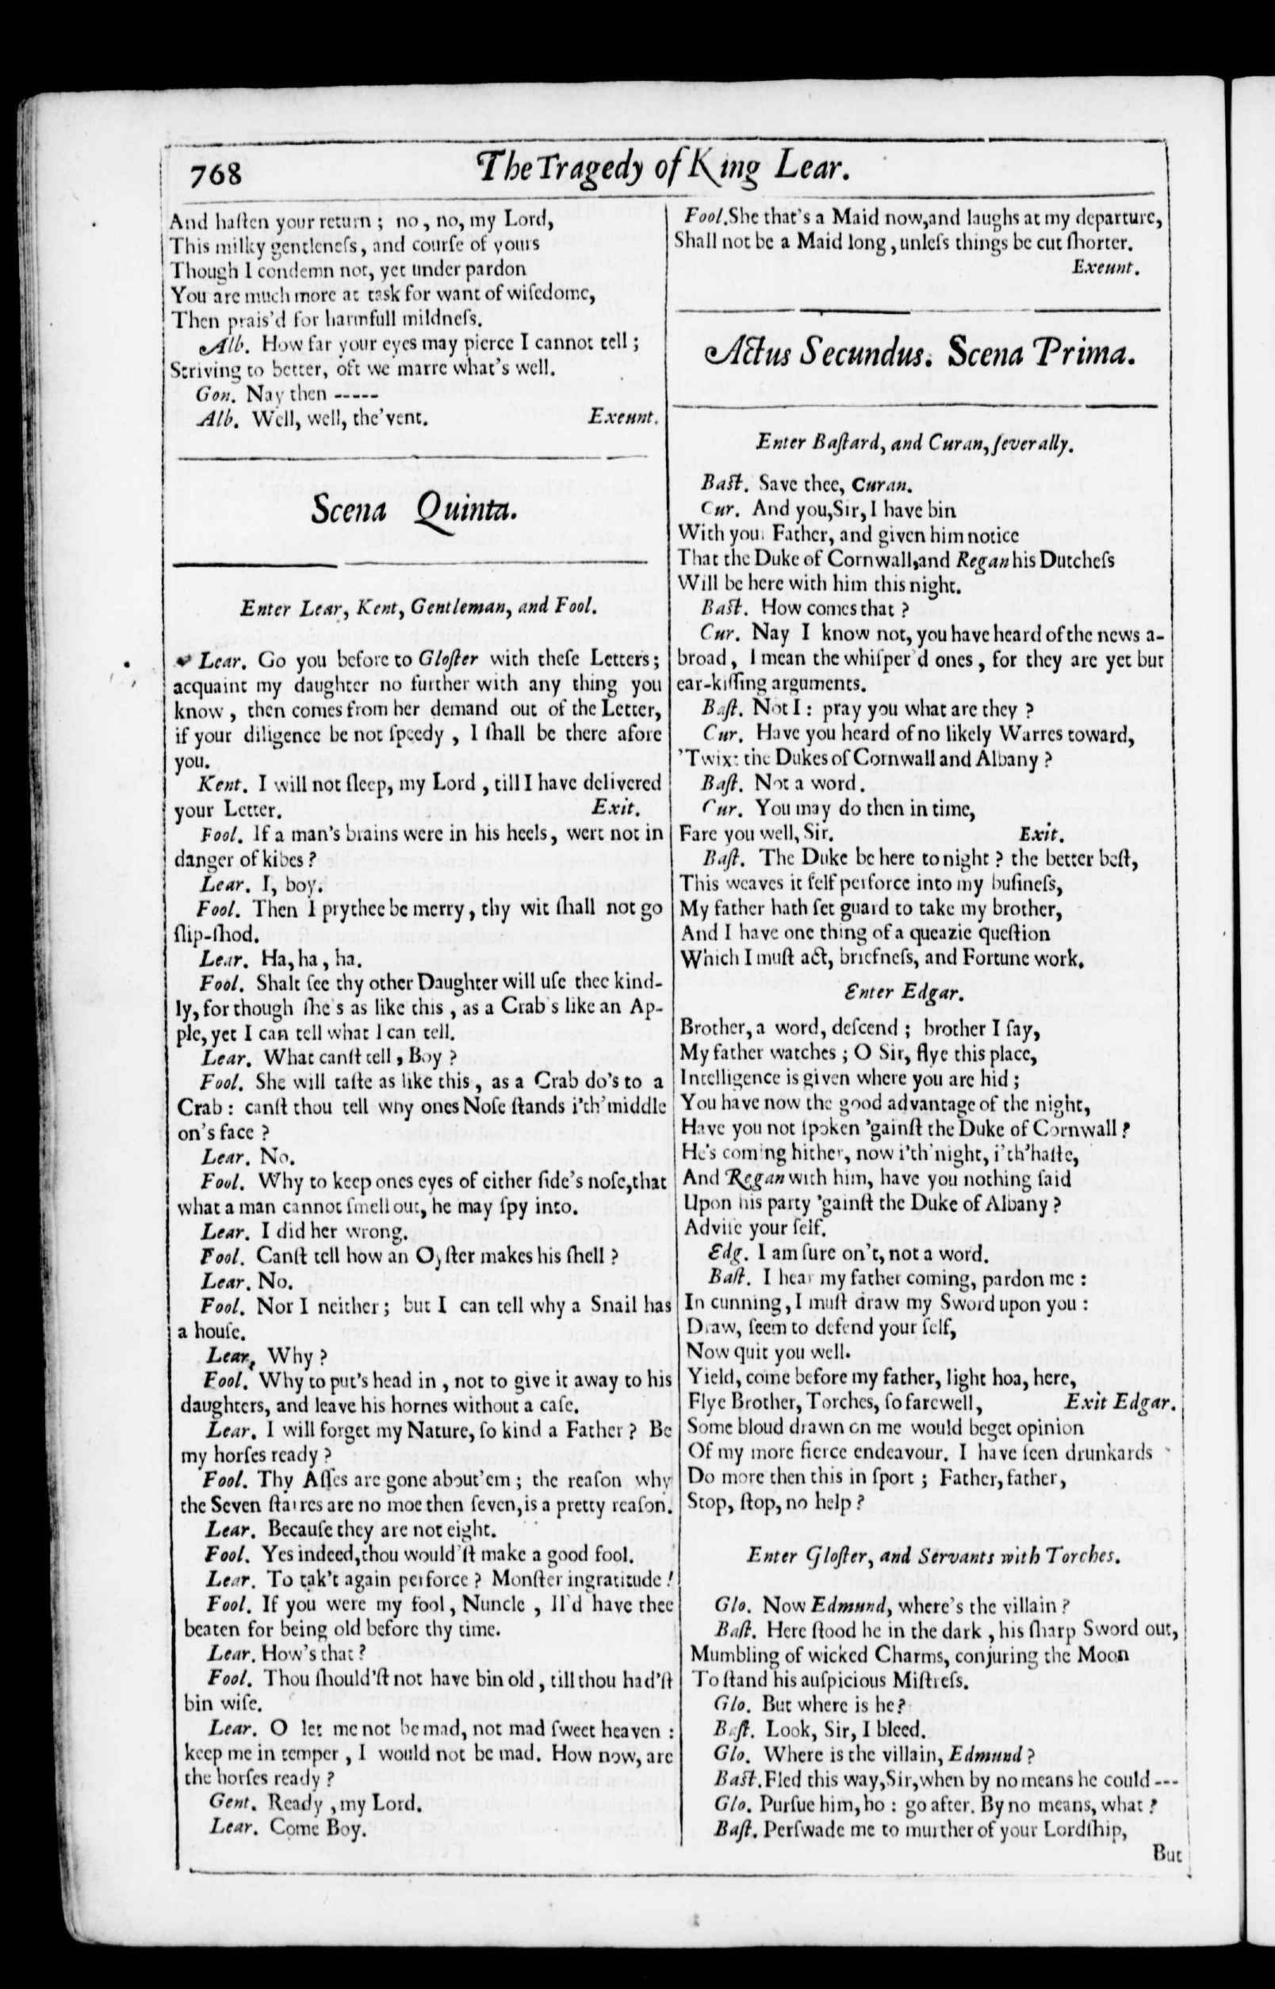 768
The Tragedy of King Lear.
And haſten your return ; no, no, my Lord,
This milky gentleneſs, and courſe of yours
Though I condemn not, yet under pardon
You are much more at task for want of wiſedome,
Then prais'd for harmfull mildneſs.
Alb. How far your eyes may pierce I cannot tell ;
Striving to better, oft we marre what's well.
Gon. Nay then -----
Alb. Well, well, the'vent. Exeunt.
Scena Quinta.
Enter Lear, Kent, Gentleman, and Fool.
Lear. Go you before to Gloſter with theſe Letters ;
acquaint my daughter no further with any thing you
know, then comes from her demand out of the Letter,
if your diligence be not ſpeedy, I ſhall be there afore
you.
Kent. I will not ſleep, my Lord, till I have delivered
your Letter. Exit.
Fool. If a man's brains were in his heels, wert not in
danger of kibes ?
Lear. I, boy.
Fool. Then I prythee be merry, thy wit ſhall not go
ſlip-ſhod.
Lear. Ha, ha, ha.
Fool. Shalt ſee thy other Daughter will uſe thee kind-
ly, for though ſhe's as like this, as a Crab's like an Ap-
ple, yet I can tell what I can tell.
Lear. What canſt tell, Boy ?
Fool. She will taſte as like this, as a Crab do's to a
Crab : canſt thou tell why ones Noſe ſtands i'th'middle
on's face ?
Lear. No.
Fool. Why to keep ones eyes of either ſide's noſe, that
what a man cannot ſmell out, he may ſpy into.
Lear. I did her wrong.
Fool. Canſt tell how an Oyſter makes his ſhell ?
Lear. No.
Fool. Nor I neither ; but I can tell why a Snail has
a houſe.
Lear. Why ?
Fool. Why to put's head in, not to give it away to his
daughters, and leave his hornes without a caſe.
Lear. I will forget my Nature, ſo kind a Father ? Be
my horſes ready ?
Fool. Thy Aſſes are gone about'em ; the reaſon why
the Seven ſtarres are no moe then ſeven, is a pretty reaſon.
Lear. Becauſe they are not eight.
Fool. Yes indeed, thou would'ſt make a good fool.
Lear. To tak't again perforce ? Monſter ingratitude !
Fool. If you were my fool, Nuncle, Il'd have thee
beaten for being old before thy time.
Lear. How's that ?
Fool. Thou ſhould'ſt not have bin old, till thou had'ſt
bin wiſe.
Lear. O let me not be mad, not mad ſweet heaven :
keep me in temper, I would not be mad. How now, are
the horſes ready ?
Gent. Ready, my Lord.
Lear. Come Boy.
Fool. She that's a Maid now, and laughs at my departure,
Shall not be a Maid long, unleſs things be cut ſhorter.
Exeunt.
Actus Secundus. Scena Prima.
Enter Baſtard, and Curan, ſeverally.
Baſt. Save thee, Curan.
Cur. And you, Sir, I have bin
With you Father, and given him notice
That the Duke of Cornwall, and Regan his Dutcheſs
Will be here with him this night.
Baſt. How comes that ?
Cur. Nay I know not, you have heard of the news a-
broad, I mean the whiſper'd ones, for they are yet but
ear-kiſſing arguments.
Baſt. Not I : pray you what are they ?
Cur. Have you heard of no likely Warres toward,
'Twixt the Dukes of Cornwall and Albany ?
Baſt. Not a word.
Cur. You may do then in time,
Fare you well, Sir. Exit.
Baſt. The Duke be here to night ? the better beſt,
This weaves it ſelf perforce into my buſineſs,
My father hath ſet guard to take my brother,
And I have one thing of a queazie queſtion
Which I muſt act, briefneſs, and Fortune work.
Enter Edgar.
Brother, a word, deſcend ; brother I ſay,
My father watches ; O Sir, flye this place,
Intelligence is given where you are hid ;
You have now the good advantage of the night,
Have you not ſpoken 'gainſt the Duke of Cornwall ?
He's coming hither, now i'th'night, i'th'haſte,
And Regan with him, have you nothing ſaid
Upon his party 'gainſt the Duke of Albany ?
Adviſe your ſelf.
Edg. I am ſure on't, not a word.
Baſt. I hear my father coming, pardon me :
In cunning, I muſt draw my Sword upon you :
Draw, ſeem to defend your ſelf,
Now quit you well.
Yield, come before my father, light hoa, here,
Flye Brother, Torches, ſo farewell, Exit Edgar.
Some bloud drawn on me would beget opinion
Of my more fierce endeavour. I have ſeen drunkards
Do more then this in ſport ; Father, father,
Stop, ſtop, no help ?
Enter Gloſter, and Servants with Torches.
Glo. Now Edmund, where's the villain ?
Baſt. Here ſtood he in the dark, his ſharp Sword out,
Mumbling of wicked Charms, conjuring the Moon
To ſtand his auſpicious Miſtreſs.
Glo. But where is he ?
Baſt. Look, Sir, I bleed.
Glo. Where is the villain, Edmund ?
Baſt. Fled this way, Sir, when by no means he could ---
Glo. Purſue him, ho : go after. By no means, what ?
Baſt. Perſwade me to murther of your Lordſhip,
But